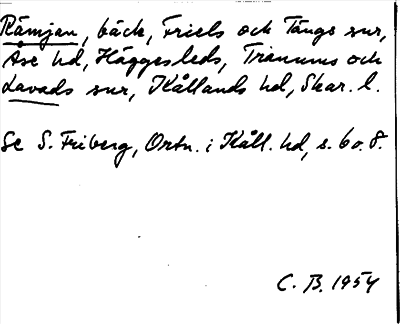 Rämjan, bäck, Friels och Tängs snr,
Åse hd, Häggesleds, Tranums och
Lavads snr, Kållands hd, Skar. l.
Se S. Friberg, Ortn. i Kåll. hd, s. 60. 8.
C. B. 1954